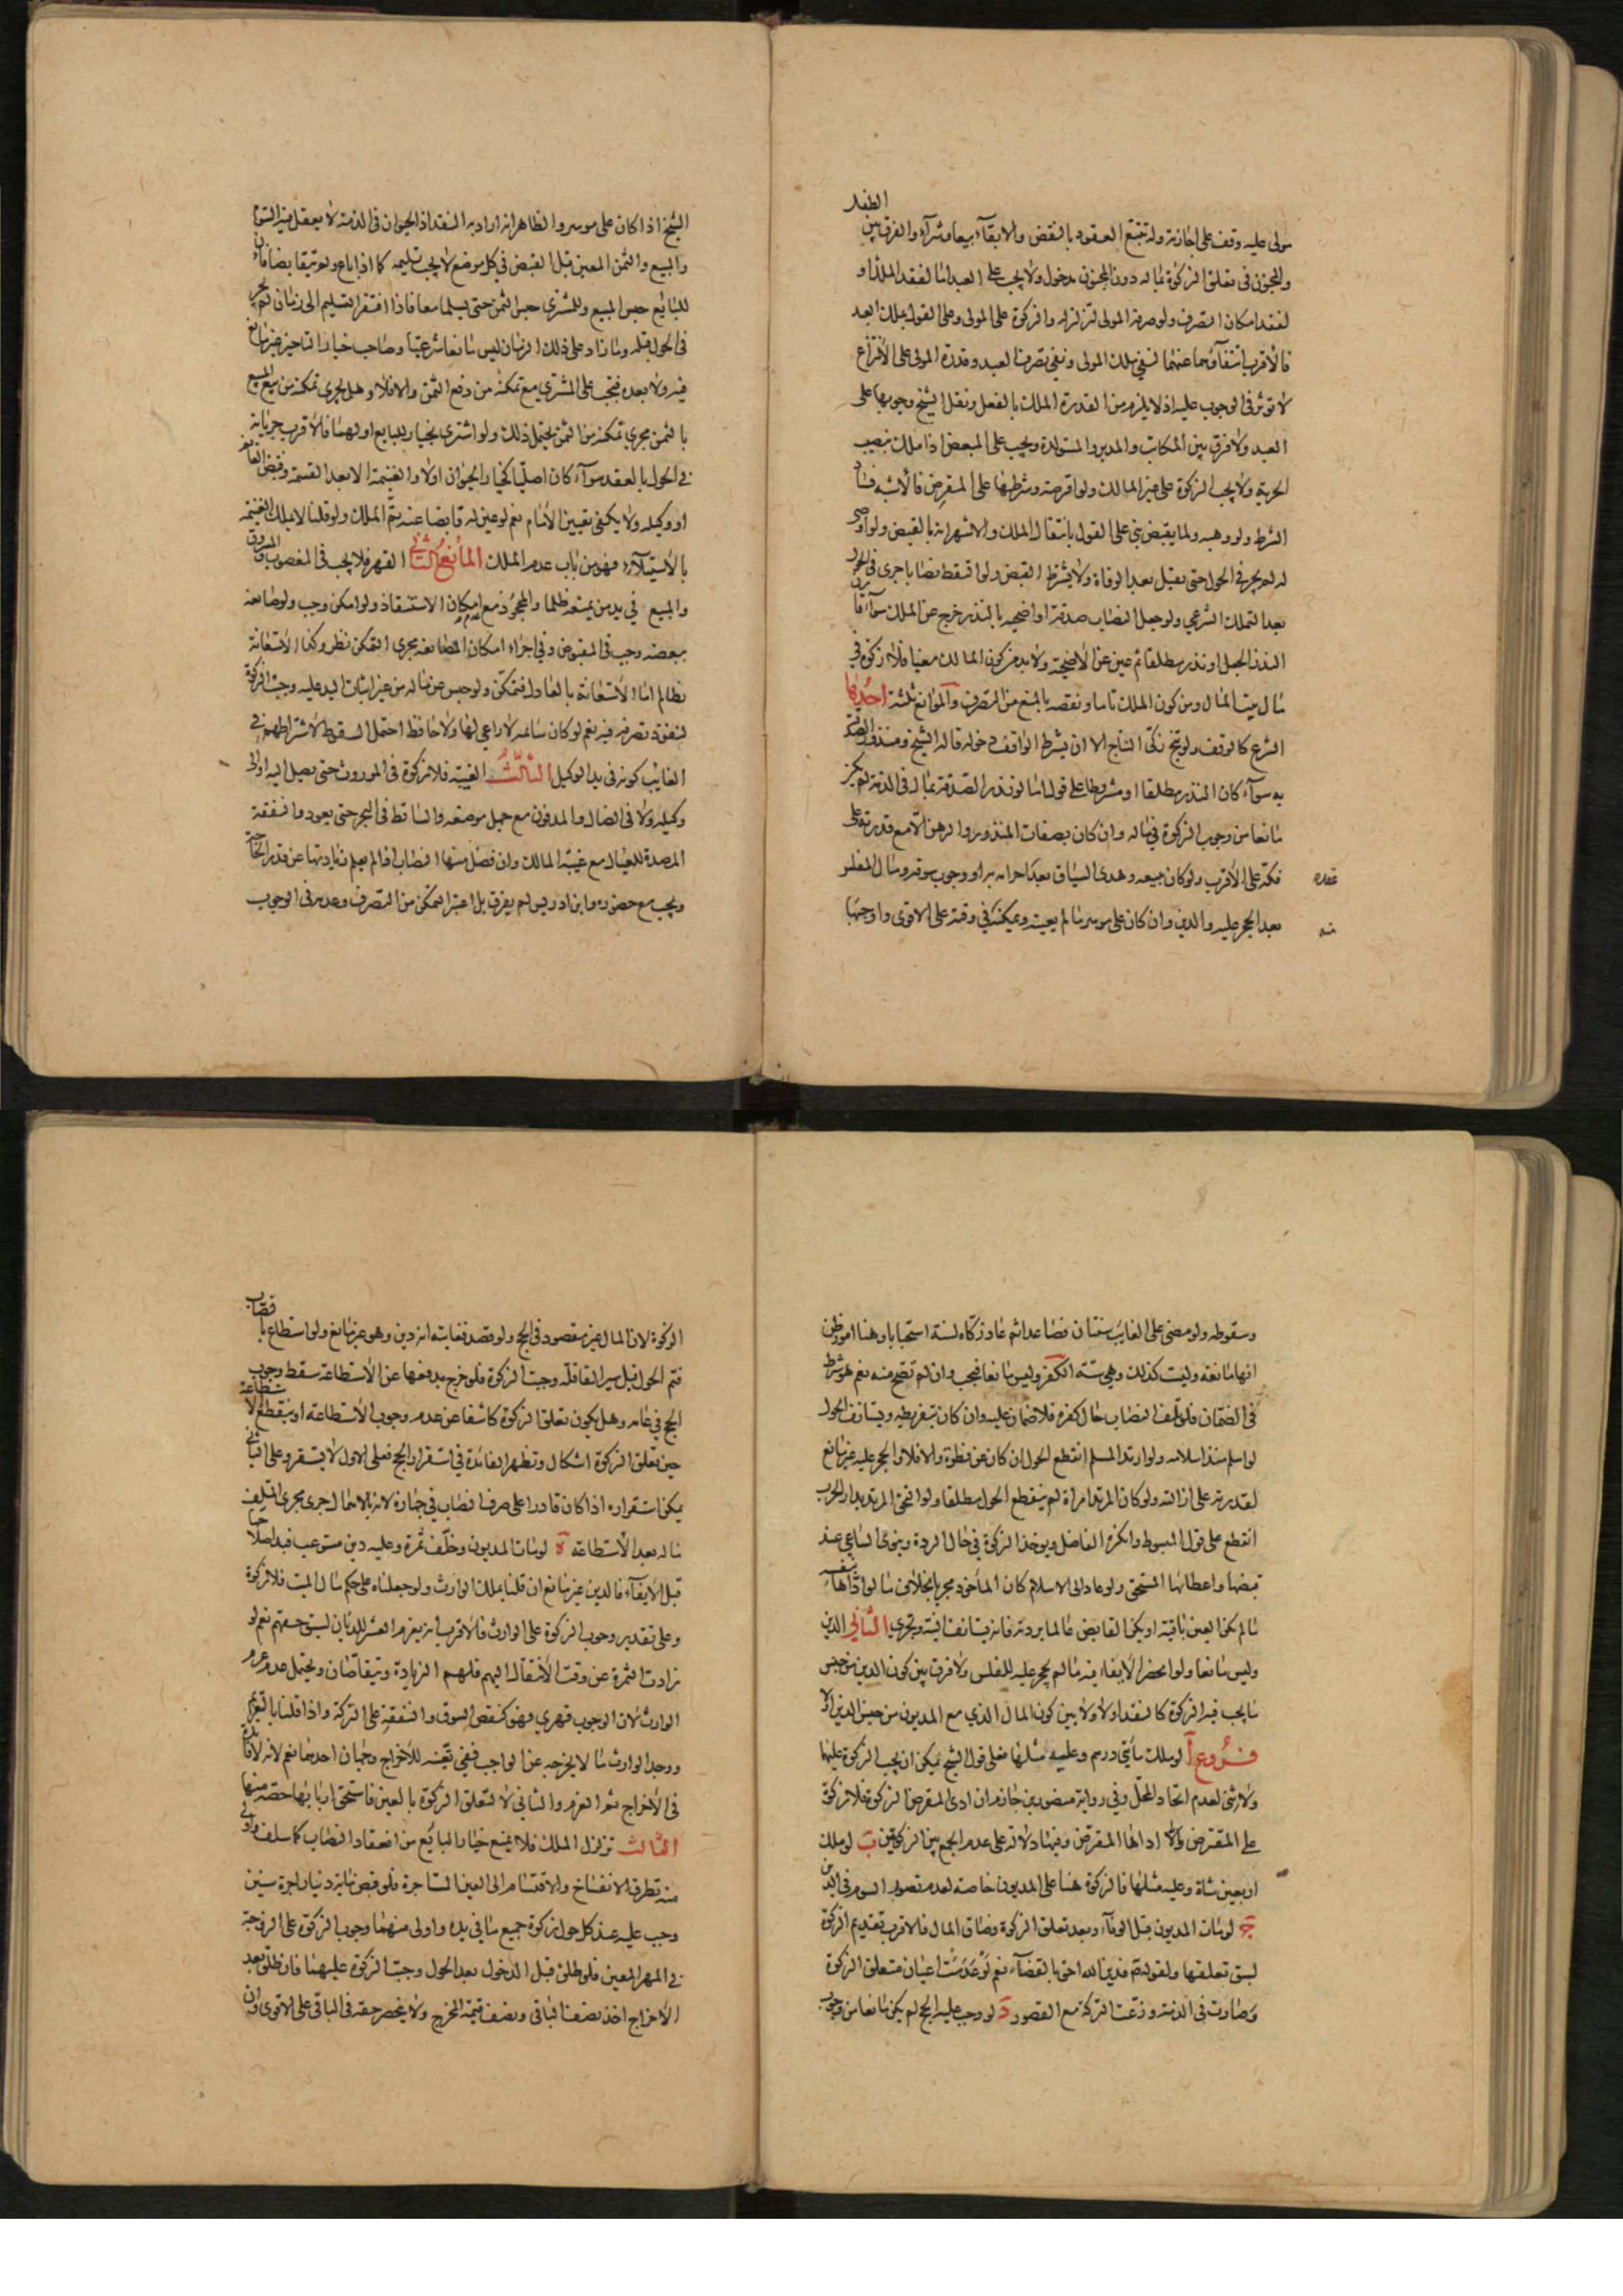 مولى عليه وقف على اجازته وله تتبع العقود بالنقض والابقاء بيعا وشراء والفرق بين الطفل
والمجنون في تعلق الزكوة بماله دون المجنون مدخول ولا يجب على العبد اما لفقد الملك او
لفقد امكان التصرف ولو صرفه المولى لتزلزله والزكوة على المولى وعلى القول بملك العبد
فالاقرب انتفاؤها عنهما لنفي ملك المولى ونفي تصرف العبد وقدرة المولى على الانتزاع
لا تؤثر في الوجوب عليه اذ لا يلزم من القدرة الملك بالفعل ونقل الشيخ وجوبها على
العبد ولا فرق بين المكاتب والمدبر والمستولدة ويجب على المبعض اذا ملك بنصيب
الحرية ولا يجب الزكوة على غير المالك ولو اقرضه وشرطها على المقرض فالاشبه فساد
الشرط ولو وهبه ولما يقبض بني على القول بانتقال الملك والاشهر انه بالقبض ولو اوصى
له لم يجر في الحول حتى يقبل بعد الوفاة ولا يشترط القبض ولو التقط نصابا جرى في الحول
بعد التملك الشرعي ولو جعل النصاب صدقة او اضحية بالنذر خرج عن الملك سواء قارن
النذر الجعل او نذر مطلقا ثم عين عن الاضحية ولا بد من كون المالك معينا فلا زكوة في
مال بيت المال ومن كون الملك تاما ونقصه بالمنع من التصرف والموانع ثلثة احدها
الشرع كالوقف ولو نتج زكى النتاج الا ان يشترط الواقف دخوله قاله الشيخ ومنذور الصدقة
به سواء كان النذر مطلقا او مشروطا على قول اما لو نذر الصدقة بمال في الذمة لم يكن
مانعا من وجوب الزكوة في ماله وان كان بصفات المنذور والرهن الا مع قدرته على
فكه على الاقرب ولو كان ببيعه وهدي السياق بعد احرامه به او وجوب سوقه ومال المفلس
بعد الحجر عليه والدين وان كان على موسر ما لم يعينه ويمكنه في وقته على الاقوى واوجبها
عقده
منه
الشيخ اذا كان على موسر والظاهر انه اراد به النقد اذ الحيوان في الذمة لا يعقل فيه السوم
والمبيع والثمن المعين قبل القبض في كل موضع لا يجب تسليمه كما اذا باع ولم تيقا بضا فان
للبائع حبس المبيع وللمشتري حبس الثمن حتى يسلما معا فاذا افتقر التسليم الى زمان لم يجر
في الحول قبله وما زاد على ذلك الزمان ليس مانعا شرعيا وصاحب خيار التاخير غير مانع
فيه ولا بعده فتجب على المشتري مع تمكنه من دفع الثمن والا فلا وهل يجري تمكنه من بيع المبيع
بالثمن مجرى تمكنه من الثمن يحتمل ذلك ولو اشترى بخيار للبايع او لهما فالاقرب جريانه
في الحول بالعقد سواء كان اصليا كخيار الحيوان اولا والغنيمة الا بعد القسمة وقبض الغانم
او وكيله ولا يكفي تعيين الامام نعم لو عين له قابضا عنه تم الملك ولو قلنا لا يملك الغنيمة
بالاستيلاء فهو من باب عدم الملك المانع الثاني القهر فلا يجب في المغصوب والمسروق
والمبيع في يد من يمنعه ظلما والمجحود مع امكان الاستنقاذ ولو امكن وجب ولو صانعه
ببعضه وجب في المقبوض وفي اجراء امكان المصانعة مجرى التمكن نظر وكذا الاستعانة
بظالم اما الاستعانة بالعادل فتمكن ولو حبس عن ماله من غير اثبات اليد عليه وجبت الزكوة
لنفوذ تصرفه فيه نعم لو كان سائمة لا راعي لها ولا حافظ احتمل السقوط لاشتراطهم في
الغائب كونه في يد الوكيل الثالث الغيبة فلا زكوة في الموروث حتى يصل اليه او الى
وكيله ولا في الضال والمدفون مع جهل موضعه والساقط في البحر حتى يعود والنفقة
المعدة للعيال مع غيبة المالك وان فضل منها النصاب اذا لم يعلم زيادتها عن قدر الحاجة
ويجب مع حضوره وابن ادريس لم يفرق بل اعتبر التمكن من التصرف وعدمه في الوجوب
وسقوطه ولو مضى على الغايب سنتان فصاعدا ثم عاد زكاه لسنة استحبابا وهنا امور ظن
انها مانعة وليست كذلك وهي ستة الكفر وليس مانعا فيجب وان لم تصح منه نعم هو شرط
في الضمان فلو تلف النصاب حال كفره فلا ضمان عليه وان كان بتفريطه ويستانف الحول
لو اسلم منذ اسلامه ولو ارتد المسلم انقطع الحول ان كان عن فطرة والا فلا والحجر عليه غير مانع
لقدرته على ازالته ولو كان المرتد امراة لم ينقطع الحول مطلقا ولو التحق المرتد بدار الحرب
انقطع على قول المبسوط وانكره الفاضل ويوخذ الزكوة في حال الردة وينوي الساعي عند
قبضها واعطائها المستحق ولو عاد الى الاسلام كان الماخوذ مجزيا بخلاف ما لو اداها بنفسه
ما لم يكن العين باقية او يكن القابض عالما بردته فانه يستانف النية وتجزي الثاني الدين
وليس مانعا ولو انحصر الايفاء فيه ما لم يحجر عليه للفلس ولا فرق بين كون الدين من جنس
ما يجب فيه الزكوة كالنقد اولا ولا بين كون المال الذي مع المديون من جنس الدين اولا
فروع ا لو ملك مأتي درهم وعليه مثلها فعلى قول الشيخ يمكن ان يجب الزكوة عليهما
ولا ثنى لعدم اتحاد المحل وفي رواية منصور بن حازم ان ادى المقرض الزكوة فلا زكوة
على المقترض والا اداها المقترض وفيها دلالة على عدم الجمع بين الزكوتين ب لو ملك
اربعين شاة وعليه مثلها فالزكوة هنا على المديون خاصة لعدم تصور السوم في الدين
ج لو مات المديون قبل الوفاء وبعد تعلق الزكوة وضاق المال فالاقرب تقديم الزكوة
لسبق تعلقها ولقوله ع فدين الله احق بالقضاء نعم لو عدمت اعيان متعلق الزكوة
وصارت في الذمة وزعت التركة مع القصور د لو وجب عليه الحج لم يكن مانعا من وجوب
الزكوة لان المال غير مقصود في الحج ولو قصد فغايته انه دين وهو غير مانع ولو استطاع بالنصاب
فتم الحول قبل سير القافلة وجبت الزكوة فلو خرج بدفعها عن الاستطاعة سقط وجوب
الحج في عامه وهل يكون تعلق الزكوة كاشفا عن عدم وجوب الاستطاعة او ينقطع الاستطاعة
حين تعلق الزكوة اشكال وتظهر الفائدة في استقرار الحج فعلى الاول لا يستقر وعلى الثاني
يمكن استقراره اذا كان قادرا على صرف النصاب في جهازه لانه بالاهمال جرى مجرى المتلف
ماله بعد الاستطاعة ه لو مات المديون وخلف ثمرة وعليه دين مستوعب فبدا صلاحها
قبل الايفاء فالدين غير مانع ان قلنا يملك الوارث ولو جعلناه على حكم مال الميت فلا زكوة
وعلى تقدير وجوب الزكوة على الوارث فالاقرب انه يغرم العشر للديان لسبق حقهم نعم لو
زادت الثمرة عن وقت الانتقال اليهم فلهم الزيادة ويتقاصان ويحتمل عدم غرم
الوارث لان الوجوب قهري فهو كنقص السوق والنفقة على التركة واذا قلنا بالتغريم
ووجد الوارث ما لا يخرجه عن الواجب ففي تعينه للاخراج وجهان احدهما نعم لانه لا فائدة
في الاخراج ثم الغرم والثاني لا لتعلق الزكوة بالعين فاستحق اربابها حصة منها
الثالث تزلزل الملك فلا يمنع خيار البائع من انعقاد النصاب كما سلف واولى
منه تطرق الانفساخ والاقتسام الى العين المستاجرة فلو قبض مائة دينار اجرة سنين
وجب عليه عند كل حول زكوة جميع ما في يده واولى منهما وجوب الزكوة على الزوجة
في المهر المعين فلو طلق قبل الدخول بعد الحول وجبت الزكوة عليها فان طلق بعد
الاخراج اخذ نصف الباقي ونصف قيمة المخرج ولا ينحصر حقه في الباقي على الاقوى وان